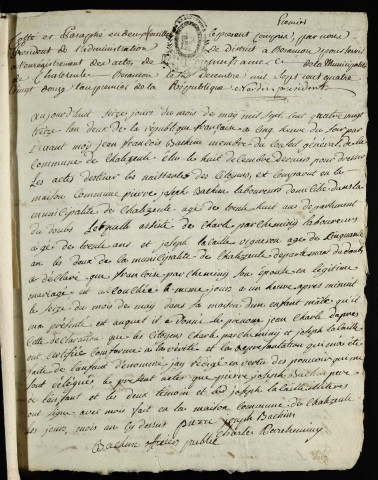 Premier
Cotté et Paraphé en deux feuilles le présent Compris, par nous
President de l'administration du District de Besancon pour servir
a l'enregistrement des actes de naissance de la Municipalité
de Chalezeule Besancon le decembre mil sept cent quatre
vingt douze l'an premier de la Republique
aujourd'huit seizes jours du mois de may mil sept cent quatre vingt
treize l'an deux de la republique francoise a cinq heure du soir par
devant moy jean francois Bachien membre du Conseil général de la
Commune de Chalezeule elu le huit decembre dernier pour dresser
les actes destinés les naissances des Citoyens, est comparut en la
maison Commune pierre joseph Bachien laboureurs domicilié dans la
municipalité de Chalezeule age de trente huit ans departement
du doubs Lequelle assisté de Charle parcheminey laboureurs
age de trente ans et joseph lacaille vigneron age de Cinquante
ans les deux de la municipalité de Chalezeule departement du doubs
a déclaré que francoise parcheminey son épouse en légitime
mariage est accouchée le meme jours a un heure apres minuit
le seize du mois de may dans sa maison d'un enfant mâle qu'il
ma présenté et auquel il a donné le prenom jean Charle d'apres
Cette déclaration que les Citoyens Charle parcheminey et joseph lacaille
ont certifiée conforme a la vérité et la représentation qui mas été
faite de l'enfant dénommé jay rédigé en vertu des pouvoirs qui me
sont delégués le présent actes que pierre joseph Bachien pere
de l'enfant et les deux temoin et joseph lacaille illitéré
ont signé avec moy fait en la maison Commune de Chalezeule
les jours, mois an cy dessus pierre joseph Bachien
Bachien officier public Charles Parcheminey